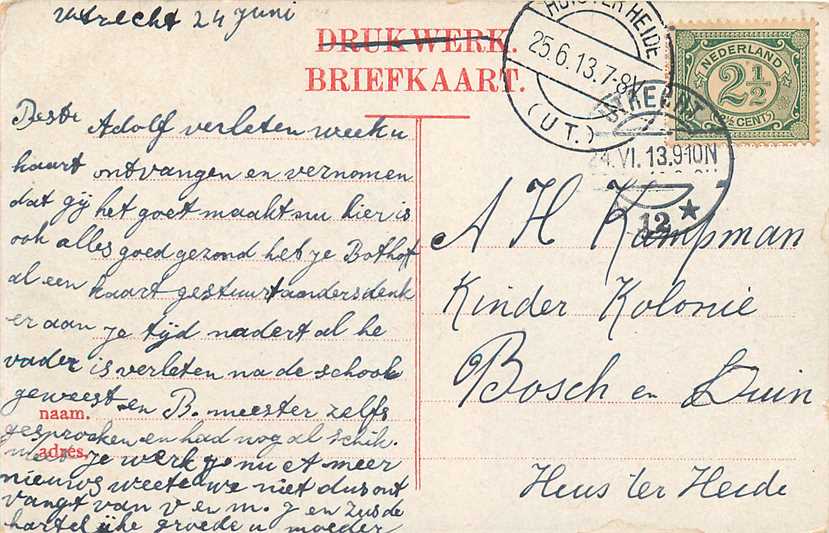 Utrecht 24 Juni
DRUKWERK.
BRIEFKAART.
HUIS TER HEIDE
25.6.13.7-8V
(UT.)
NEDERLAND
2½
2½ CENT
UTRECHT
24.VI.13.9-10N
12
Beste Adolf verleten week u
kaart ontvangen en vernomen
dat gij het goet maakt nu hier is
ook alles goed gezond heb je Bothoff
al een kaart gestuurt anders denk
er aan je tijd nadert al he
vader is verleten na de school
geweest en B. meester zelfs
naam.
gesproken en had nog al schik.
adres,
met je werk je nu A meer
nieuws weete we niet dus ont
vangt van v en m. J en Zus de
hartelijke groede u moeder
A H Kampman
Kinder Kolonie
Bosch en Duin
Huis ter Heide